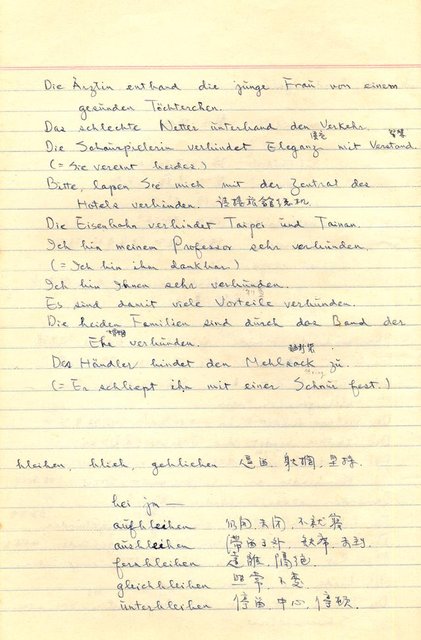 Die Ärztin entband die junge Frau von einem
gesunden Töchterchen.
Das schlechte Wetter unterband den Verkehr.
Die Schauspielerin verbindet Eleganz mit Verstand.
(= Sie vereint beides.)
Bitte, lassen Sie mich mit der Zentral des
Hotels verbinden. 請接旅館總機
Die Eisenbahn verbindet Taipei und Tainan.
Ich bin meinem Professor sehr verbunden.
(= Ich bin ihm dankbar.)
Ich bin Ihnen sehr verbunden.
Es sind damit viele Vorteile verbunden.
Die beiden Familien sind durch das Band der
婚姻
Ehe verbunden.
Der Händler bindet den Mehlsack zu.
(= Er schliept ihn mit einer Schnur fest.)
bleiben, blieb, geblieben 逗留, 耽擱, 堅持
bei ja —
aufbleiben 仍開, 未閉, 不就寢
ausbleiben 滯留于外, 缺席, 未到
fernbleiben 遠離, 隔絕
gleichbleiben 照常, 不變
unterbleiben 停留, 中止, 停頓